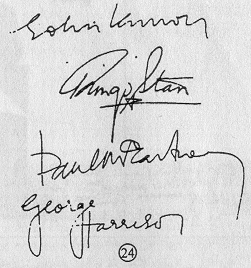 John Lennon
Ringo Starr
Paul McCartney
George
Harrison
24